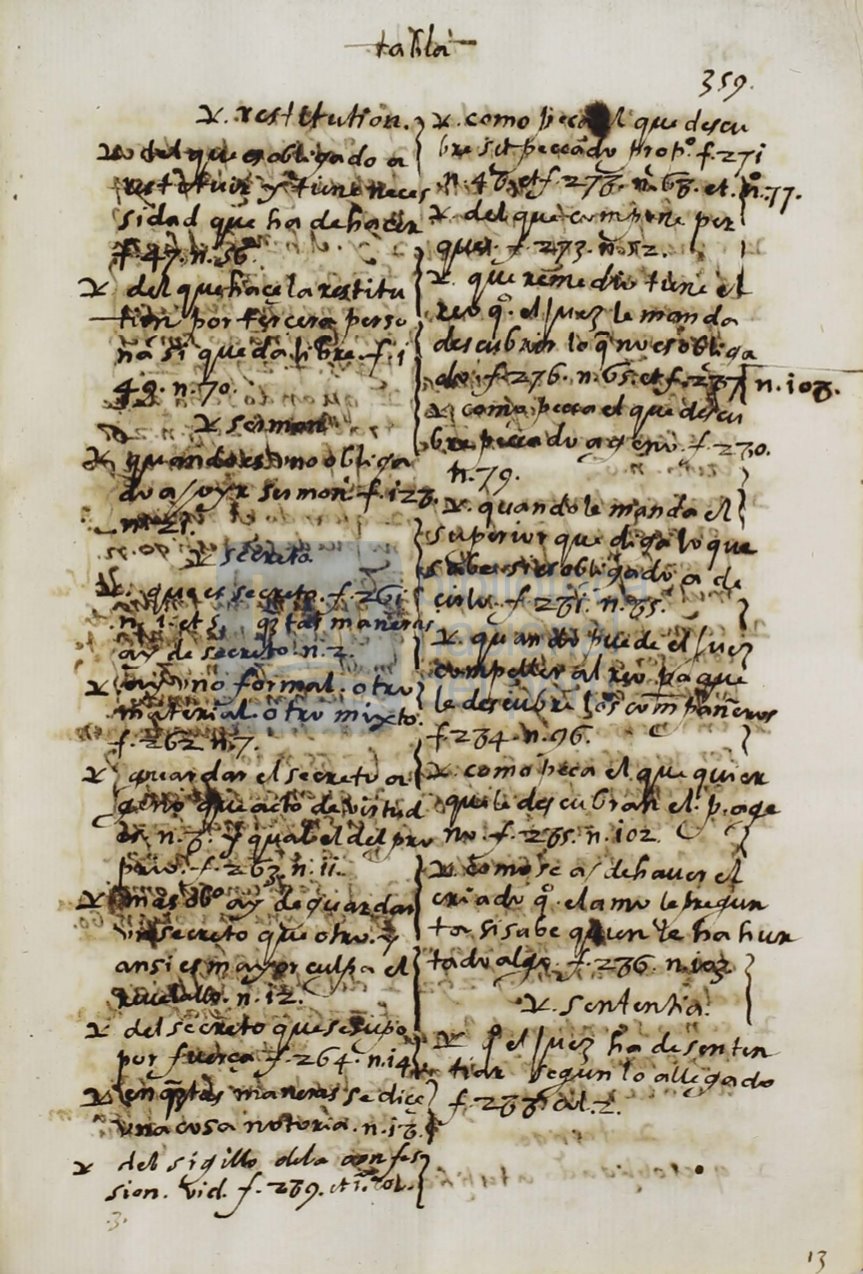 tabla
359.
℣. restitution.
℣ del que es obligado a
restituir y tiene neces
sidad que ha de hacer
f. 47. n. 56.
℣ del que haçe la restitu
tion por tercera perso
na si queda libre. f. 1
49. n. 70.
℣ sermon
℣ quando es o no obliga
do a oyr sermon. f. 128.
n. 21.
℣ secreto
℣. que es secreto. f. 261.
n. 1. et 5. qtas maneras
ay de secreto. n. 2.
℣ ay uno formal. otro
material. otro mixto.
f. 262 n. 7.
℣ guardar el secreto a
geno que acto de virtud
es. n. 8. y qual el del pro
prio. f. 263. n. 11.
℣ mas obº ay de guardar
un secreto que otro. y
ansi es mayor culpa el
n. 12.
℣ del secreto que se supo
por fuerça f. 264. n. 14
℣ en qtas maneras se diçe
una cosa notoria. n. 18
℣ del sigillo de la confes
sion. vid. f. 289. et
3.
℣. como peca el que descu
bre su peccado prop.º f. 271
n. 48. et f. 278. n. 68. et. n.º 77.
℣ del que compone per
ques. f. 273. n. 52.
℣. que remedio tiene el
reo q.º el juez le manda
descubrir lo q̃ no es obliga
do. f. 276. n. 65. et f. 287 n. 108.
℣ como pecca el que descu
bre peccado ageno. f. 280.
n. 79.
℣. quando le manda el
superior que diga lo que
sabe si es obligado a de
cirlo. f. 281. n. 85.
℣. quando puede el juez
compeller al reo pa que
le descubre los compañeros
f. 284. n. 96.
℣. como peca el que quier
que le descubran el p. age
no. f. 285. n. 102.
℣. como se a de haver el
criado q.º el amo le pregun
ta si sabe quien le ha hur
tado algo. f. 286. n. 103.
℣. sententia.
℣ q̃ el juez ha de senten
tiar segun lo allegado
f. 288. al. 2.
13